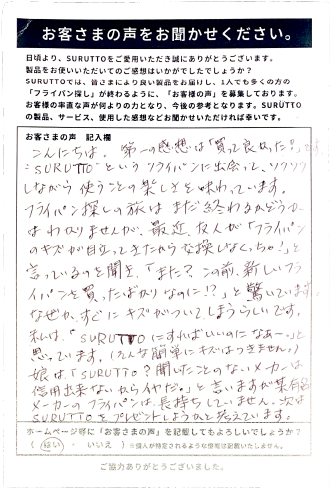 お客さまの声をお聞かせください。
日頃より、SURUTTOをご愛用いただき誠にありがとうございます。
製品をお使いいただいてのご感想はいかがでしたでしょうか？
SURUTTOでは、皆さまにより良い製品をお届けし、1人でも多くの方の
「フライパン探し」が終わるように、「お客様の声」を募集しております。
お客様の率直な声が何よりの力となり、今後の参考となります。SURUTTO
の製品、サービス、使用した感想などお聞かせいただければ幸いです。
お客さまの声　記入欄
こんにちは。第一の感想は「買って良かった？」です。
"SURUTTO"というフライパンに出会って、ワクワク
しながら使うことの楽しさを味わっています。
フライパン探しの旅はまだ終わるかどうか
はわかりませんが、最近、友人が「フライパン
のキズが目立ってきたから交換しなくっちゃ！」と
言っているのを聞き、「また？この前、新しいフラ
イパンを買ったばかりなのに！？」と驚いています。
なぜか、すぐにキズがついてしまうらしいです。
私は、「SURUTTOにすればいいのになあー。」と
思っています。（そんな簡単にキズはつきません。）
娘は「SURUTTO？聞いたことのないメーカーは
信用出来ないからイヤだ。」と言いますが某有名
メーカーのフライパンは長持ちしていません。次は
SURUTTOをプレゼントしようかと考えています。
ホームページ等に「お客さまの声」を記載してもよろしいでしょうか？
（ はい ・ いいえ ） ※個人が特定されるような情報は記載いたしません。
ご協力ありがとうございました。